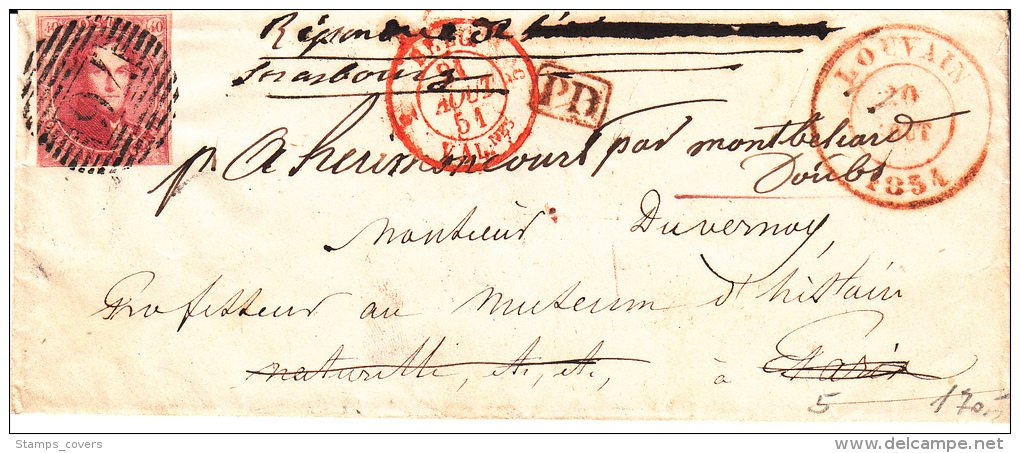 40 40
Strasbourg
BELG.
21
AOUT
51
VAL.NES
PD
LOUVAIN
20
AOUT
1851
p. A herimoncourt par montbeliard
Doubs
Monsieur Duvernoy,
Professeur au Museum d'histoir
naturelle, etc, etc, à Paris
5 170.-
Stamps_covers
delcampe.net